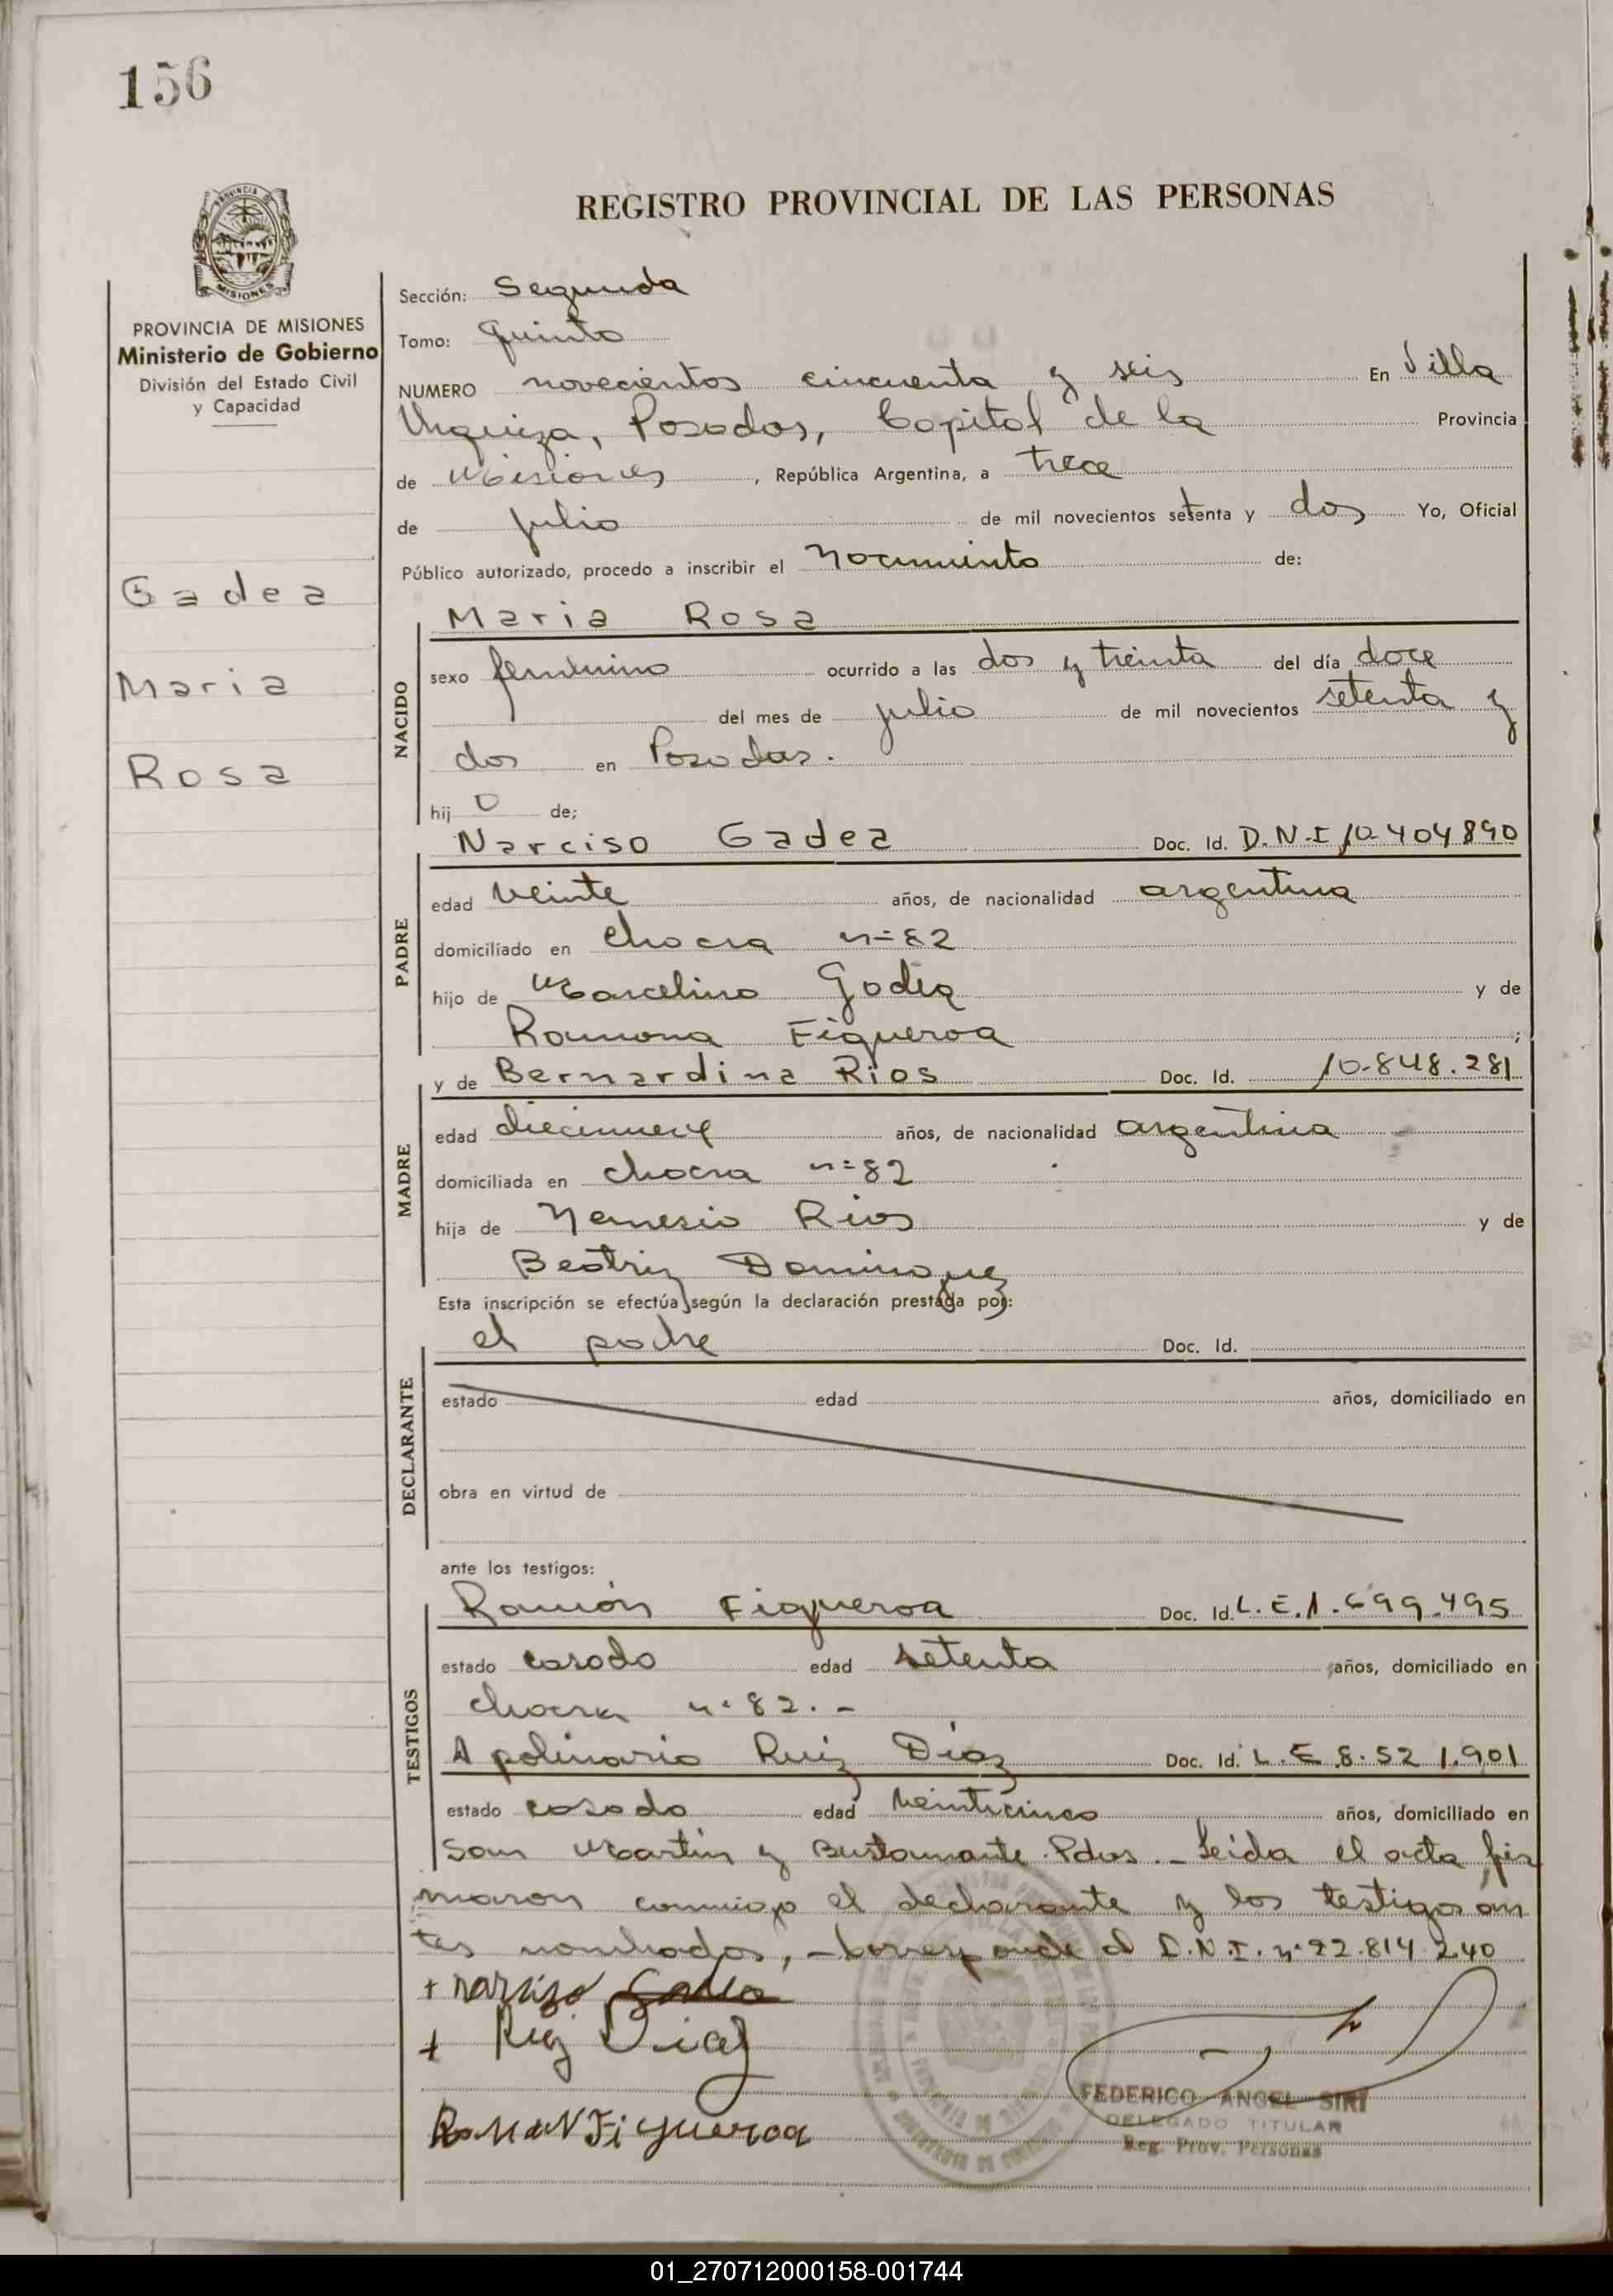 156
REGISTRO PROVINCIAL DE LAS PERSONAS
PROVINCIA DE MISIONES
Ministerio de Gobierno
División del Estado Civil
y Capacidad
Gadea
Maria
Rosa
Sección: Segunda
Tomo: Quinto
NUMERO novecientos cincuenta y seis En Villa
Urquiza, Posadas, Capital de la Provincia
de Misiones, República Argentina, a trece
de julio de mil novecientos setenta y dos Yo, Oficial
Público autorizado, procedo a inscribir el Nacimiento de:
NACIDO
Maria Rosa
sexo femenino ocurrido a las dos y treinta del día doce
del mes de julio de mil novecientos setenta y
dos en Posadas.
hij o de;
PADRE
Narciso Gadea Doc. Id. D.N.I 10.404890
edad veinte años, de nacionalidad argentina
domiciliado en chacra n=82
hijo de Marcelino Gadea y de
Ramona Figueroa;
MADRE
y de Bernardina Rios Doc. Id. 10.848.281
edad diecinueve años, de nacionalidad argentina
domiciliada en chacra n=82
hija de Nemesio Rios y de
Beatriz Dominguez
Esta inscripción se efectúa según la declaración prestada por:
DECLARANTE
el padre Doc. Id.
estado edad años, domiciliado en
obra en virtud de
ante los testigos:
TESTIGOS
Ramón Figueroa Doc. Id. L.E.1.699.495
estado casado edad setenta años, domiciliado en
chacra n° 82.-
Apolinario Ruiz Díaz Doc. Id. L.E 8.521.901
estado casado edad veinticinco años, domiciliado en
San Martín y Bustamante Pdas.- Leída el acta fir
maron conmigo el declarante y los testigos an
tes nombrados,- Corresponde al D.N.I. n° 22.814.240
+ Narciso Gadea
+ Ruiz Diaz
Ramon Figueroa
FEDERICO ANGEL SIRI
DELEGADO TITULAR
Reg. Prov. Personas
01_270712000158-001744